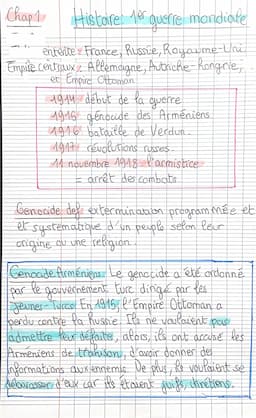 Chap 1
Histoire: 1er guerre mondiale
entente: France, Russie, Royaume-Uni
Empire centraux: Allemagne, Autriche-Hongrie,
et Empire Ottoman
1914 début de la guerre
1915 génocide des Arméniens.
1916 bataille de Verdun.
1917 révolutions russes.
11 novembre 1918 l'armistice
= arrêt des combats
Génocide def: extermination programmée et
et systématique d'un peuple selon leur
origine ou une religion.
Génocide Arméniens: Le génocide a été ordonné
par le gouvernement turc dirigé par les
Jeunes-Turcs En 1915, l'Empire Ottoman a
perdu contre la Russie. Ils ne voulaient pas
admettre leur défaites, alors, ils ont accusé les
Arméniens de trahison, d'avoir donner des
informations aux ennemis. De plus, ils voulaient se
débarasser d'eux car ils étaient juifs, chrétiens.